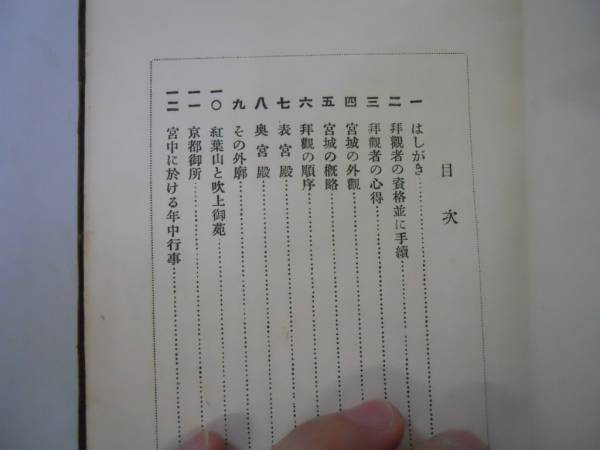 目次
一 はしがき
二 拜觀者の資格並に手續
三 拜觀者の心得
四 宮城の外觀
五 宮城の槪略
六 拜觀の順序
七 表宮殿
八 奥宮殿
九 その外廓
一〇 紅葉山と吹上御苑
一一 京都御所
一二 宮中に於ける年中行事